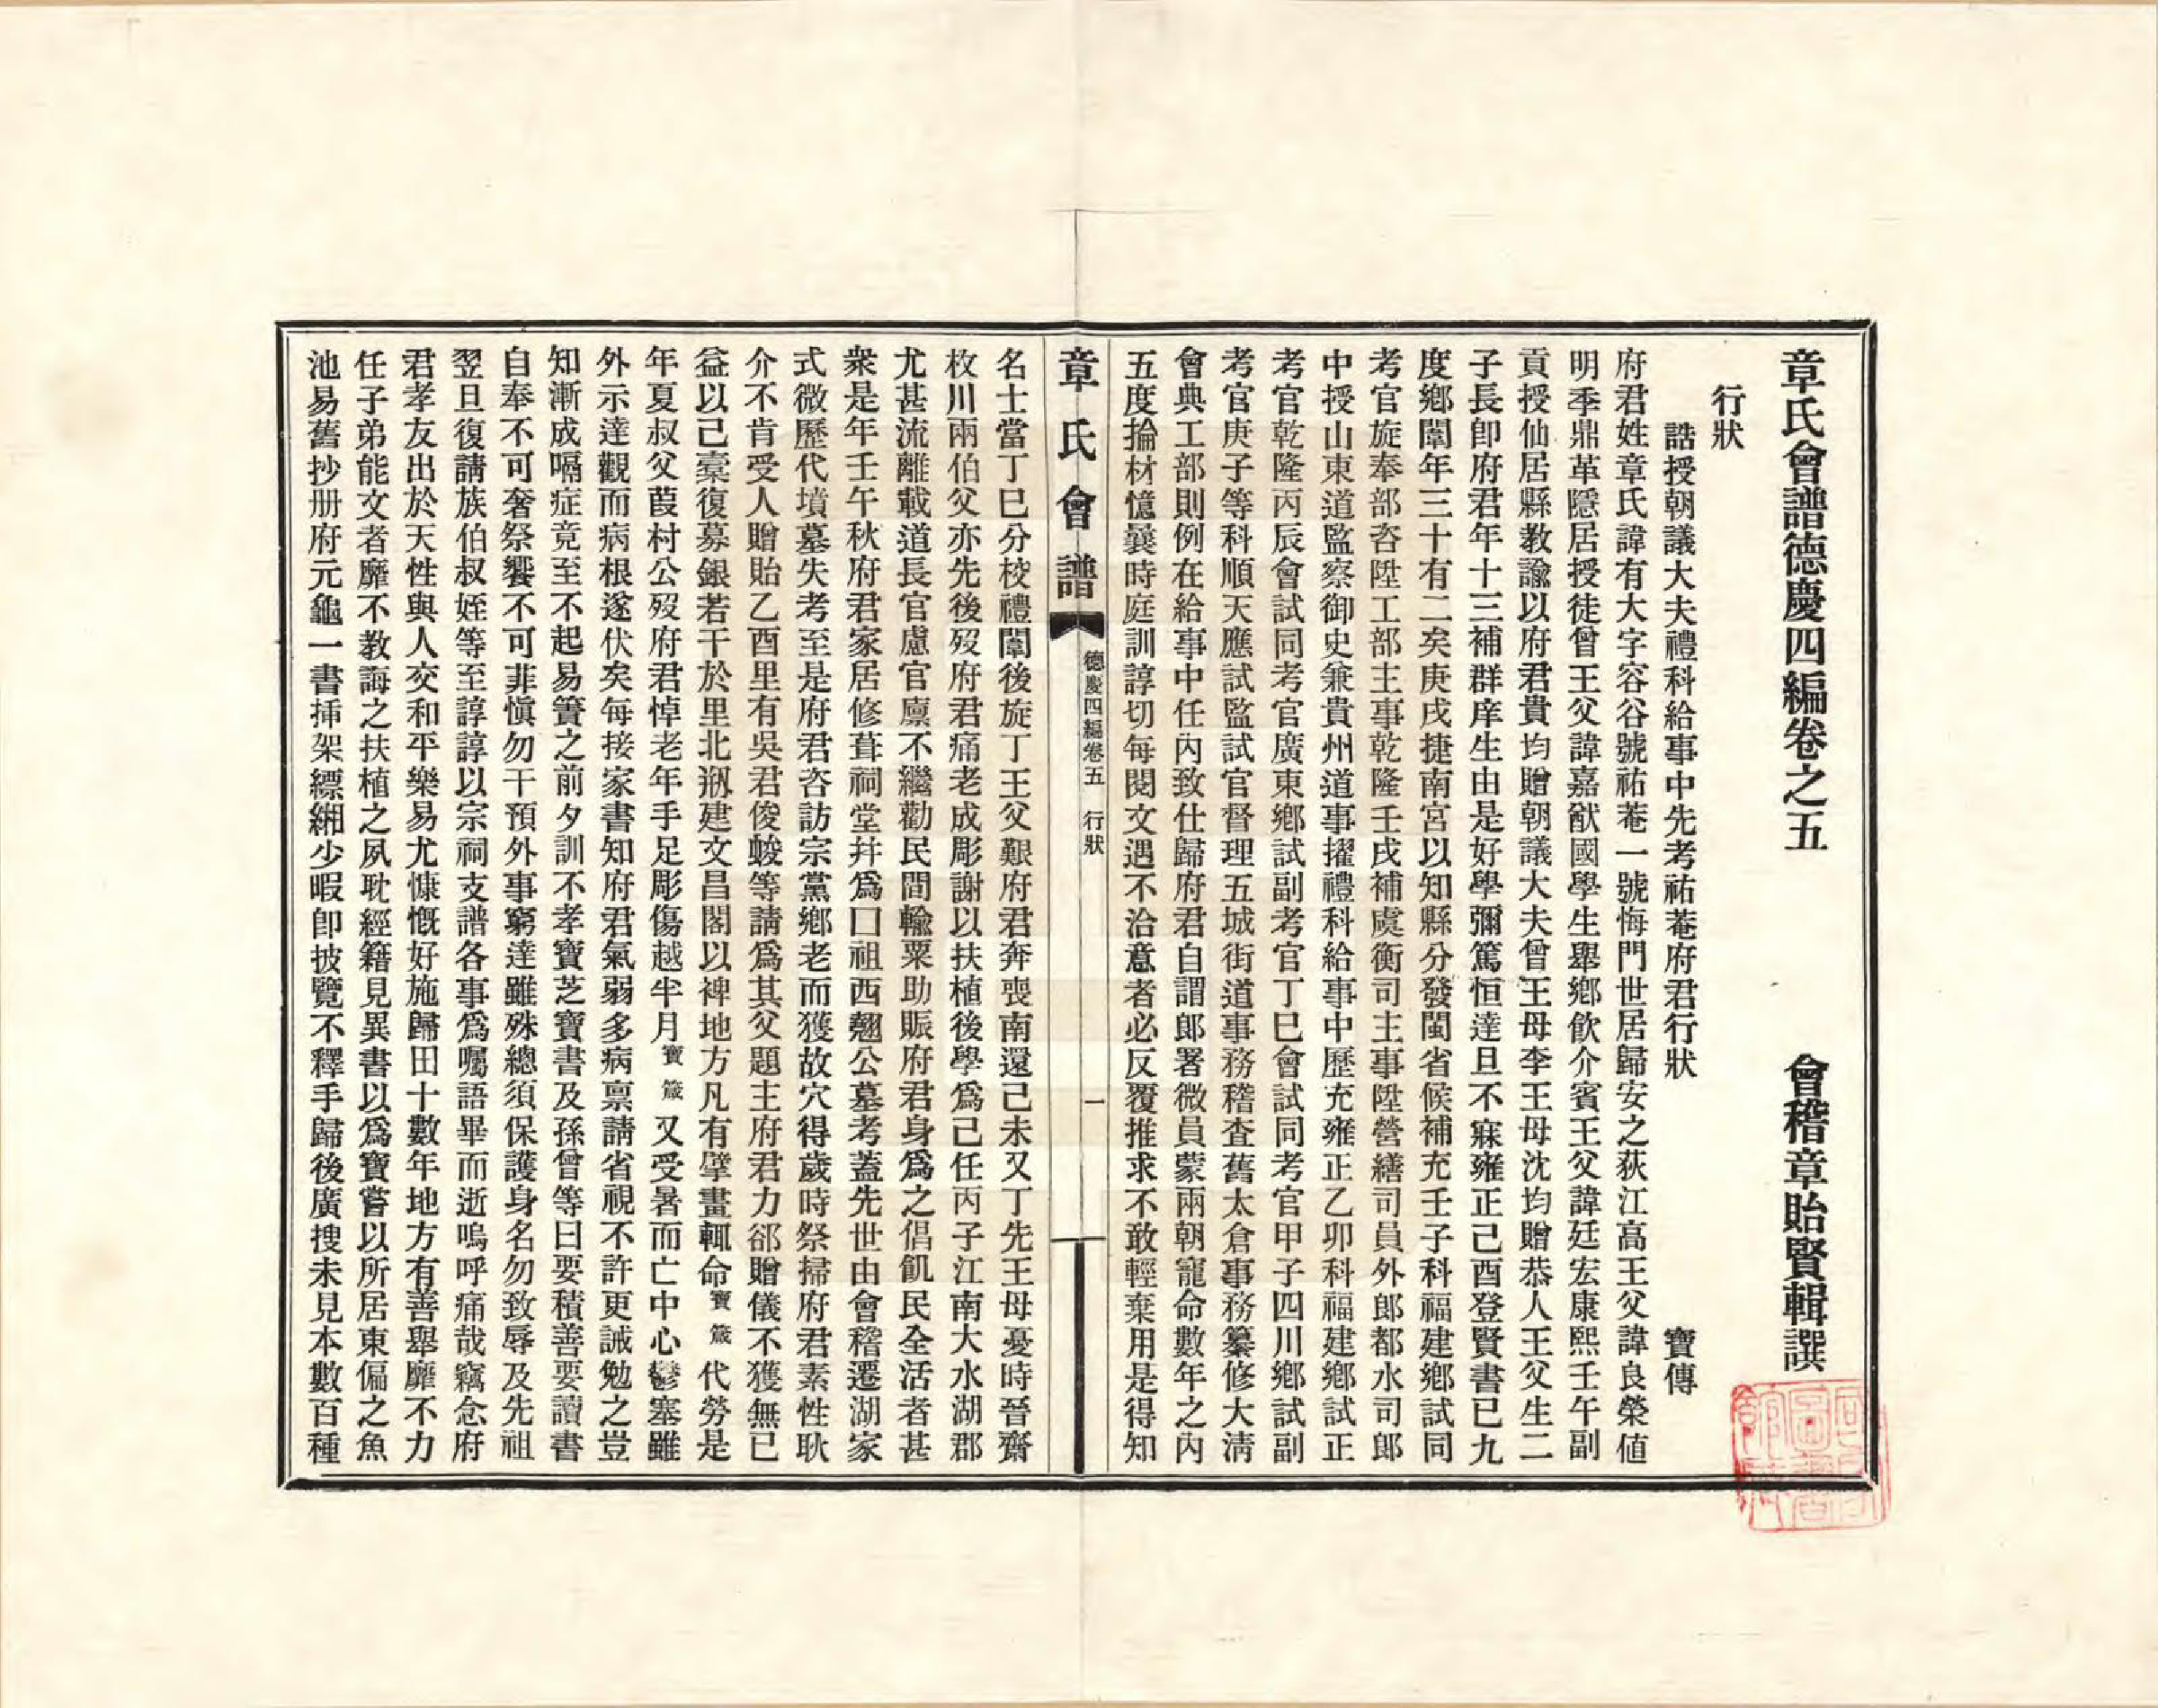 章氏會譜德慶四編卷之五　會稽章貽賢輯譔
行狀
誥授朝議大夫禮科給事中先考祐菴府君行狀　寶傳
府君姓章氏諱有大字容谷號祐菴一號悔門世居歸安之荻江高王父諱良榮値
明季鼎革隱居授徒曾王父諱嘉猷國學生舉鄉飮介賓王父諱廷宏康熙壬午副
貢授仙居縣教諭以府君貴均贈朝議大夫曾王母李王母沈均贈恭人王父生二
子長卽府君年十三補群庠生由是好學彌篤恒達旦不寐雍正己酉登賢書已九
度鄉闈年三十有二矣庚戌捷南宮以知縣分發閩省候補充壬子科福建鄉試同
考官旋奉部咨陞工部主事乾隆壬戌補虞衡司主事陞營繕司員外郎都水司郎
中授山東道監察御史兼貴州道事擢禮科給事中歷充雍正乙卯科福建鄉試正
考官乾隆丙辰會試同考官廣東鄉試副考官丁巳會試同考官甲子四川鄉試副
考官庚子等科順天應試監試官督理五城街道事務稽査舊太倉事務纂修大淸
會典工部則例在給事中任內致仕歸府君自謂郞署微員蒙兩朝寵命數年之內
五度掄材憶曩時庭訓諄切每閱文遇不洽意者必反覆推求不敢輕棄用是得知
章氏會譜　德慶四編卷五　行狀　一
名士當丁巳分校禮闈後旋丁王父艱府君奔喪南還己未又丁先王母憂時晉齋
枚川兩伯父亦先後歿府君痛老成彫謝以扶植後學爲己任丙子江南大水湖郡
尤甚流離載道長官慮官廩不繼勸民間輸粟助賑府君身爲之倡飢民全活者甚
衆是年壬午秋府君家居修葺祠堂幷爲囗祖西翹公墓考蓋先世由會稽遷湖家
式微歷代墳墓失考至是府君咨訪宗黨鄉老而獲故穴得歲時祭掃府君素性耿
介不肯受人贈貽乙酉里有吳君俊蛟等請爲其父題主府君力郤贈儀不獲無已
益以己橐復募銀若干於里北剏建文昌閣以裨地方凡有擘畫輒命寶箴代勞是
年夏叔父葭村公歿府君悼老年手足彫傷越半月寶箴又受暑而亡中心鬱塞雖
外示達觀而病根遂伏矣每接家書知府君氣弱多病稟請省視不許更誡勉之豈
知漸成嗝症竟至不起易簀之前夕訓不孝寶芝寶書及孫曾等曰要積善要讀書
自奉不可奢祭饗不可菲愼勿干預外事窮達雖殊總須保護身名勿致辱及先祖
翌旦復請族伯叔姪等至諄諄以宗祠支譜各事爲囑語畢而逝嗚呼痛哉竊念府
君孝友出於天性與人交和平樂易尤慷慨好施歸田十數年地方有善舉靡不力
任子弟能文者靡不教誨之扶植之夙耽經籍見異書以爲寶嘗以所居東偏之魚
池易舊抄册府元龜一書揷架縹緗少暇卽披覽不釋手歸後廣搜未見本數百種